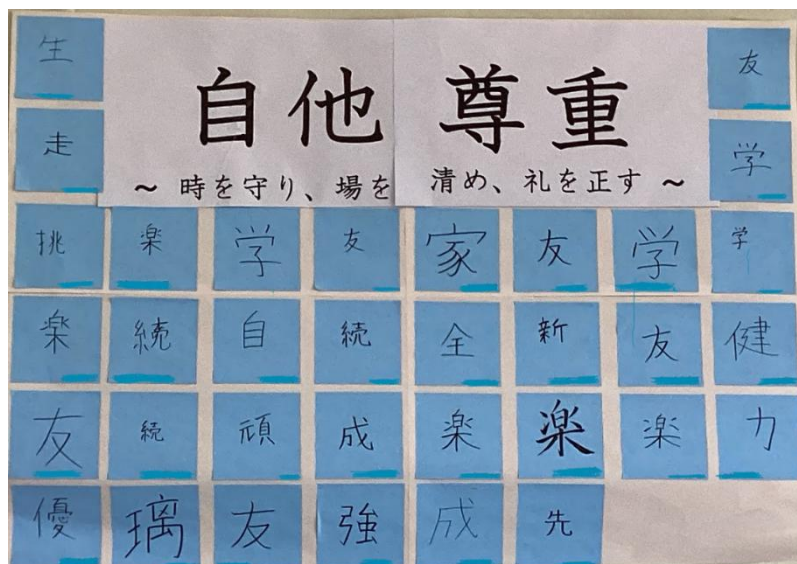 自他尊重
～ 時を守り、場を清め、礼を正す ～
生 友
走 学
挑 楽 学 友 家 友 学 学
楽 続 自 続 全 新 友 健
友 続 頑 成 楽 楽 楽 力
優 璃 友 強 成 先